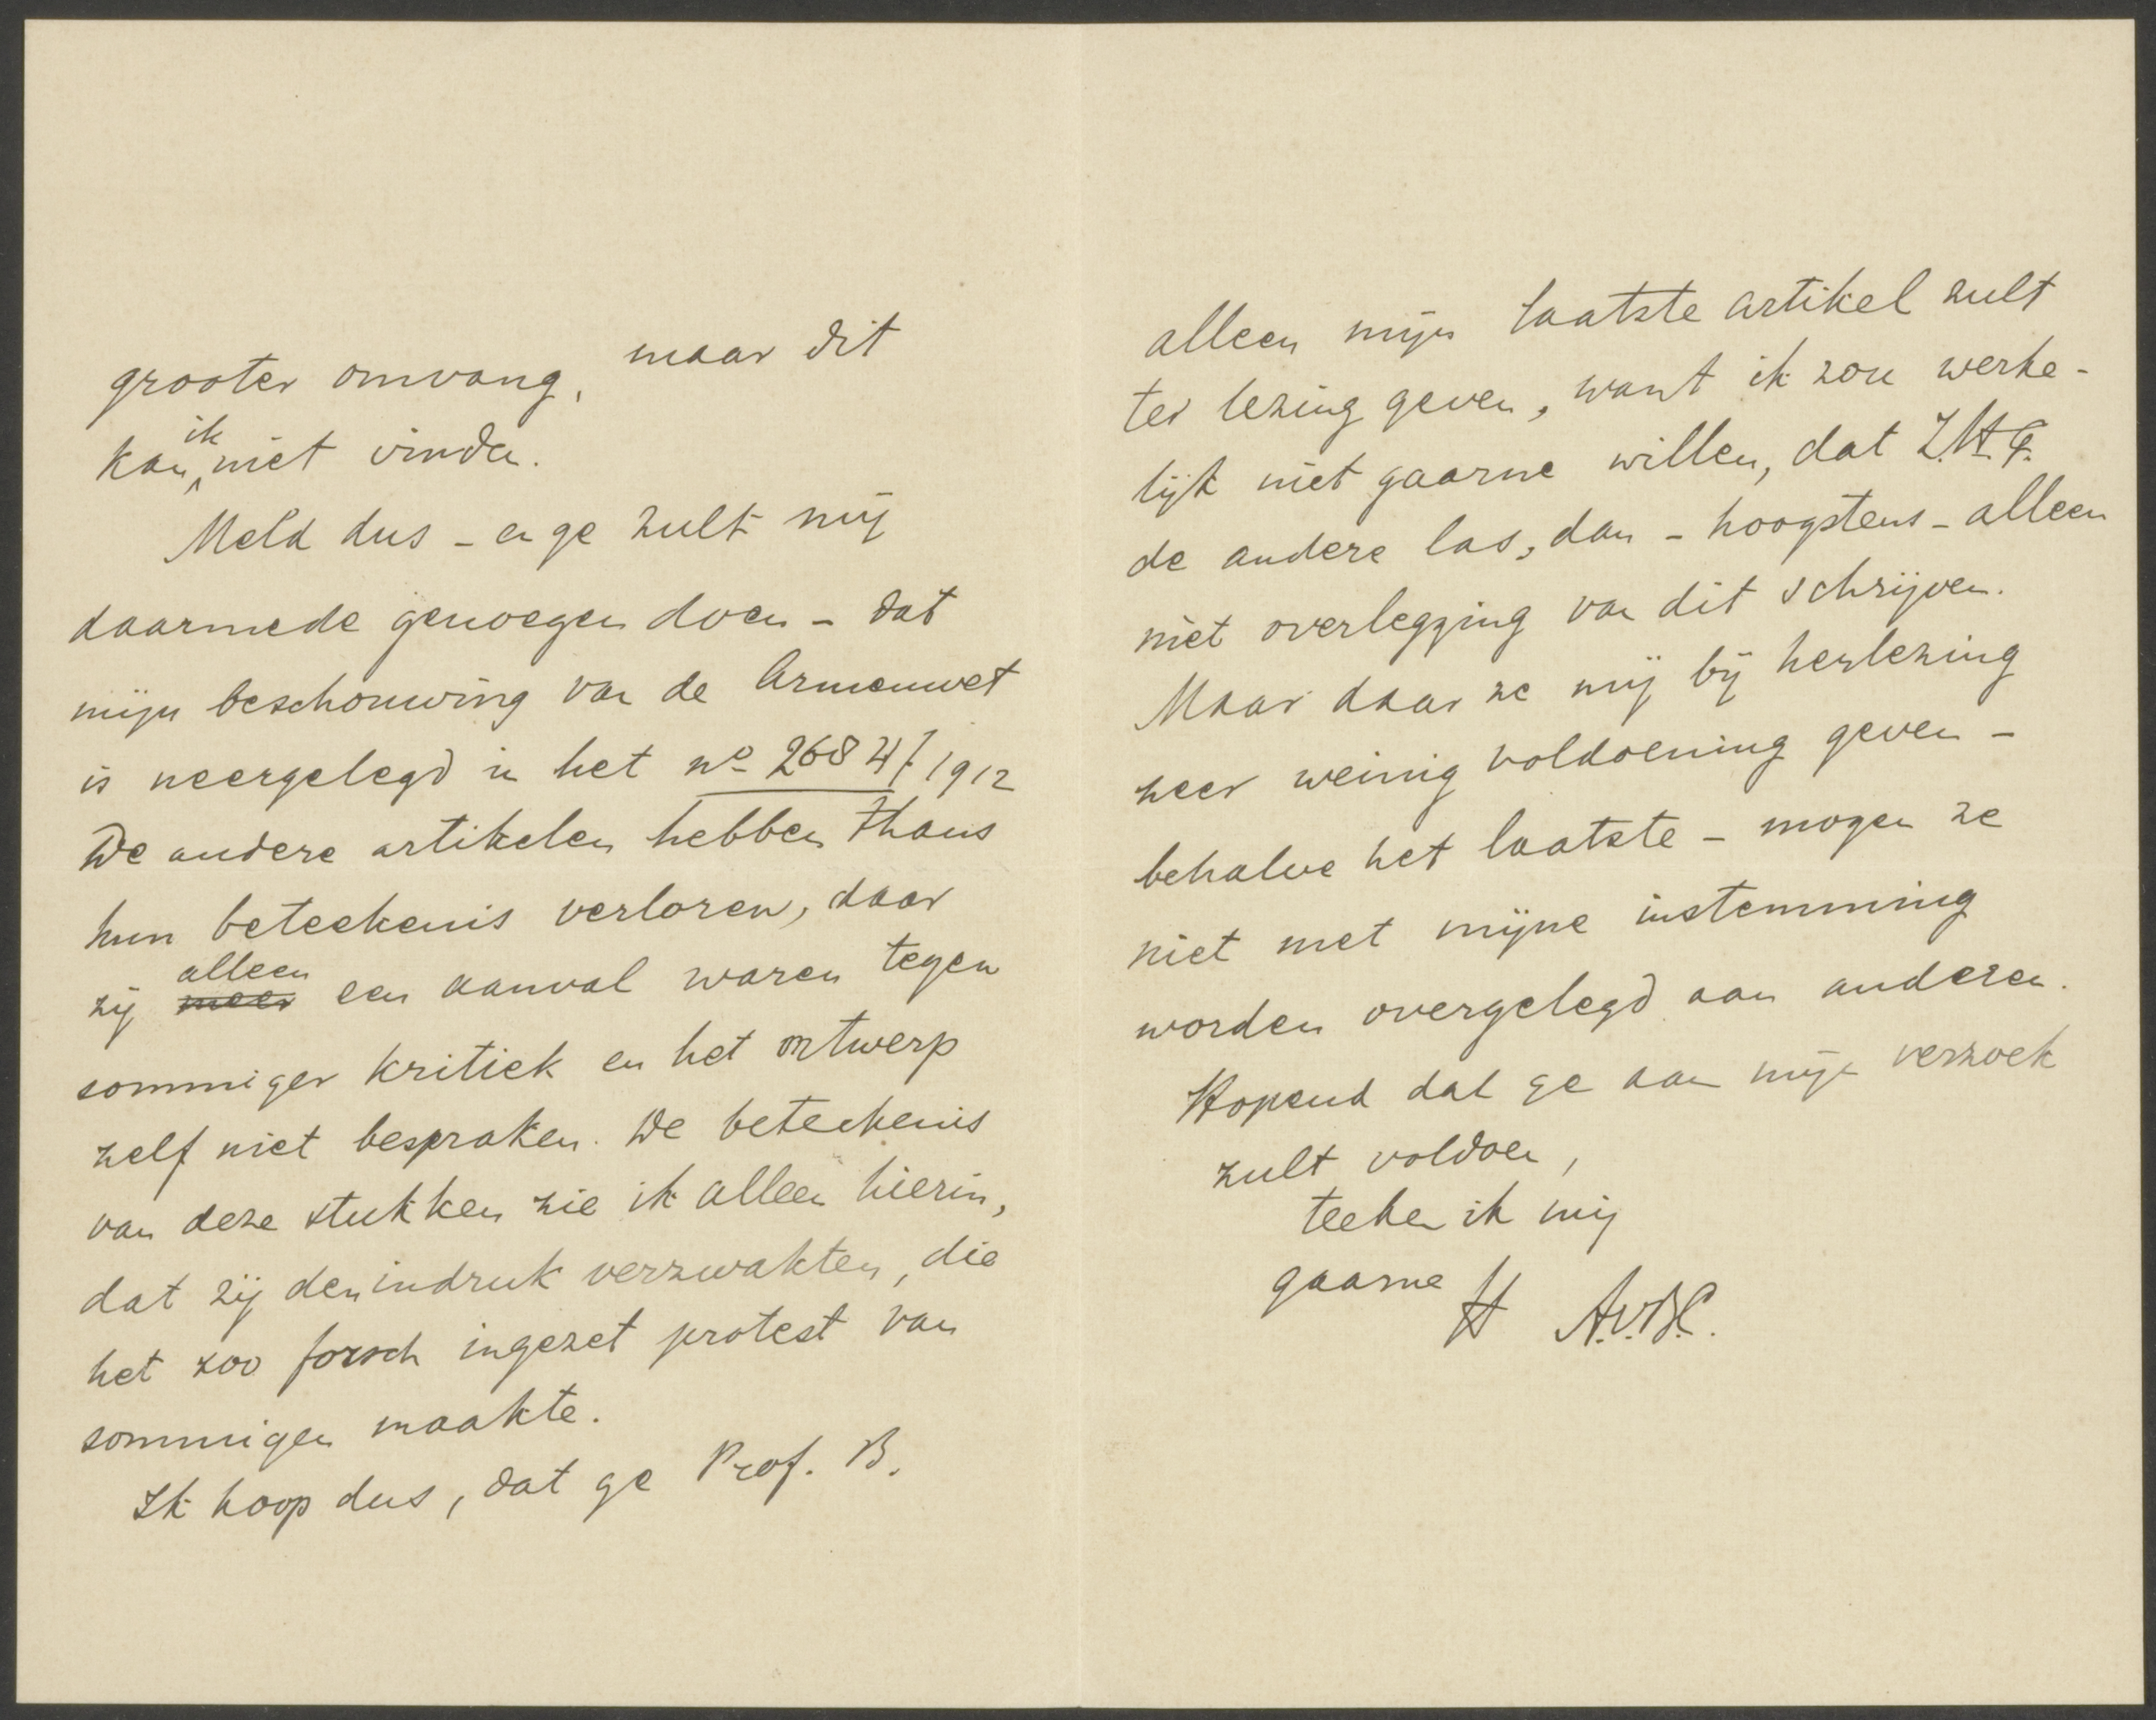 grooter omvang, maar dit
kan ik niet vinden.
Meld dus - en ge zult mij
daarmede genoegen doen - dat
mijn beschouwing van de Armenwet
is neergelegd in het no 268 4/7 1912
De andere artikelen hebben thans
hun beteekenis verloren, daar
zij meer alleen een aanval waren tegen
sommiger kritiek en het ontwerp
zelf niet bespraken. De beteekenis
van deze stukken zie ik alleen hierin,
dat zij den indruk verzwakten, die
het zoo forsch ingezet protest van
sommigen maakte.
Ik hoop dus, dat ge Prof. B.
alleen mijn laatste artikel zult
ter lezing geven, want ik zou werke-
lijk niet gaarne willen, dat Z.H.G.
de andere las, dan - hoogstens - alleen
met overlegging van dit schrijven.
Maar daar ze mij bij herlezing
zeer weinig voldoening geven -
behalve het laatste - mogen ze
niet met mijne instemming
worden overgelegd aan anderen.
Hopend dat ge aan mijn verzoek
zult voldoen,
teeken ik mij
gaarne